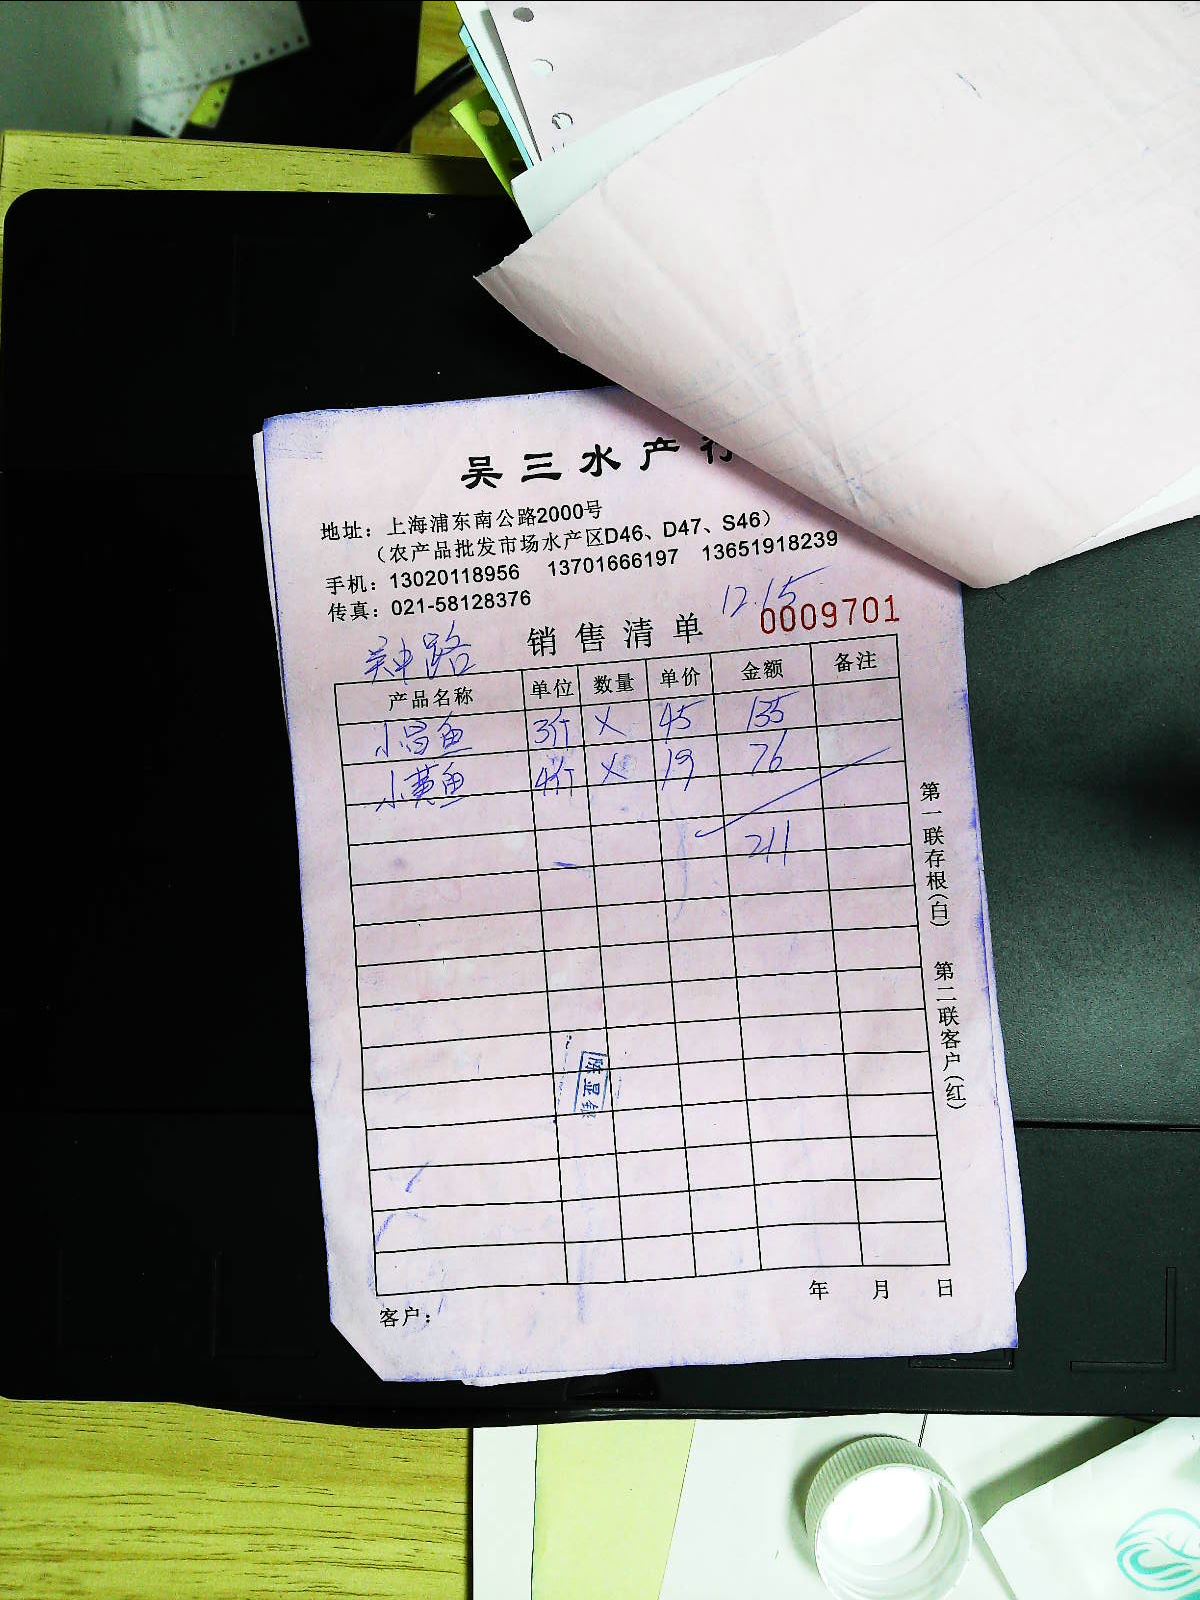 吴三水产行
地址：上海浦东南公路2000号
（农产品批发市场水产区D46、D47、S46）
手机：13020118956 13701666197 13651918239
传真：021-58128376
12.15
吴中路 销售清单 0009701
产品名称 单位 数量 单价 金额 备注
小昌鱼 3斤 × 45 135
小黄鱼 4斤 × 19 76
211
第一联存根（白） 第二联客户（红）
陈显
年 月 日
客户：